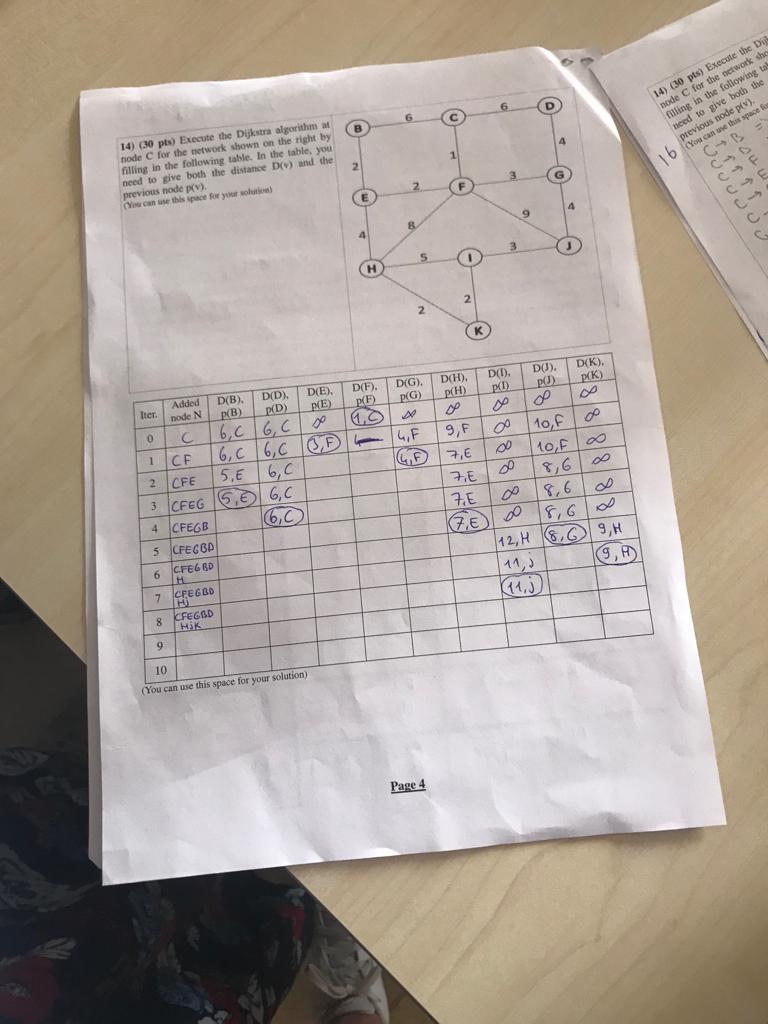 14) (30 pts) Execute the Dijkstra algorithm at
node C for the network shown on the right by
filling in the following table. In the table, you
need to give both the distance D(v) and the
previous node p(v).
(You can use this space for your solution)
B 6 C 6 D
2 1 4
E 2 F 3 G
4 8 9 4
H 5 I 3 J
2 2
K
Iter. Added node N D(B), p(B) D(D), p(D) D(E), p(E) D(F), p(F) D(G), p(G) D(H), p(H) D(I), p(I) D(J), p(J) D(K), p(K)
0 C 6,C 6,C ∞ 1,C ∞ ∞ ∞ ∞ ∞
1 CF 6,C 6,C 3,F 4,F 9,F ∞ 10,F ∞
2 CFE 5,E 6,C 4,F 7,E ∞ 10,F ∞
3 CFEG 5,E 6,C 7,E ∞ 8,G ∞
4 CFEGB 6,C 7,E ∞ 8,G ∞
5 CFEGBD 7,E ∞ 8,G ∞
6 CFEGBD H 12,H 8,G 9,H
7 CFEGBD Hj 11,j 9,H
8 CFEGBD HjK 11,j
9
10
(You can use this space for your solution)
Page 4
14) (30 pts) Execute the Dij
node C for the network sho
filling in the following tab
need to give both the
previous node p(v).
(You can use this space for
16